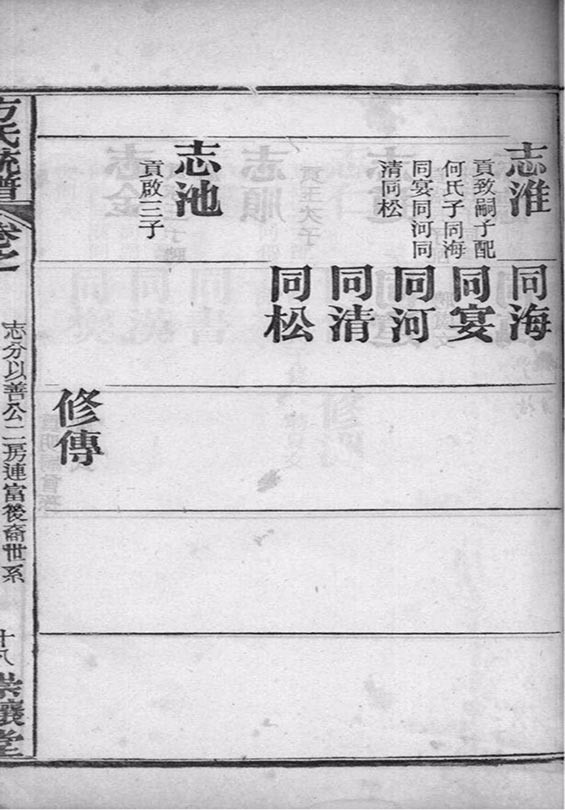 志淮
貢致嗣子配
何氏子同海
同宴同河同
清同松
志池
貢啟三子
同海
同宴
同河
同清
同松
修傳
方氏統譜
卷之
志分以善公二房連富後裔世系
十八